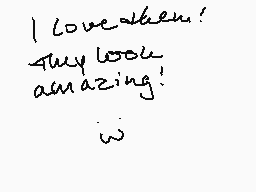 I love them!
They look
amazing!